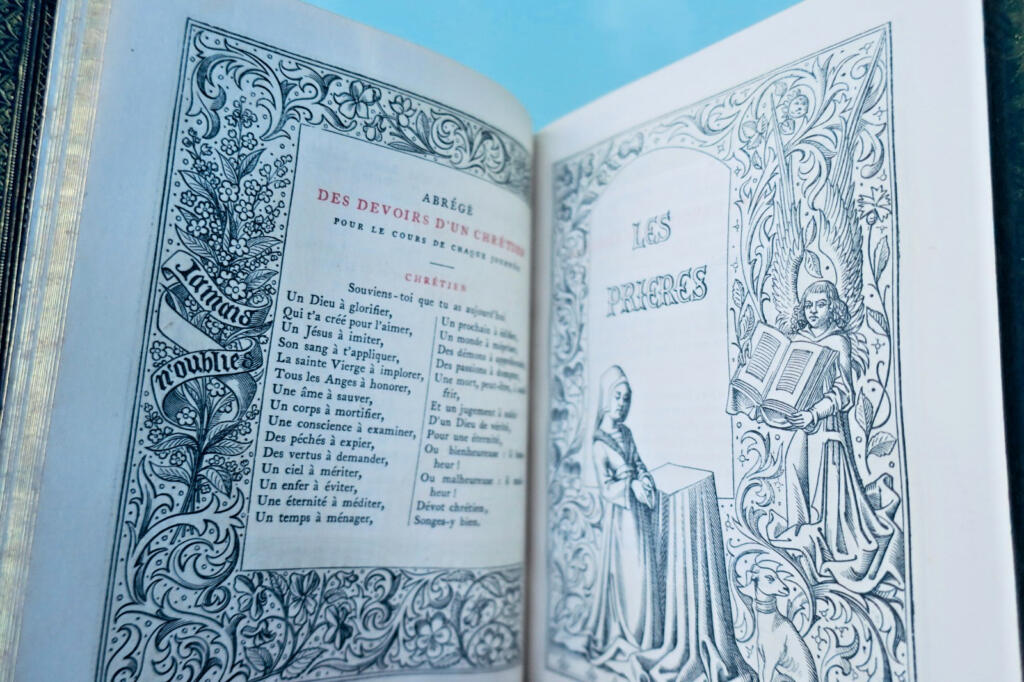 Jamais
n'oubliés
ABRÉGÉ
DES DEVOIRS D'UN CHRÉTIEN
POUR LE COURS DE CHAQUE JOURNÉE
CHRÉTIEN
Souviens-toi que tu as aujourd'hui
Un Dieu à glorifier,
Qui t'a créé pour l'aimer,
Un Jésus à imiter,
Son sang à t'appliquer,
La sainte Vierge à implorer,
Tous les Anges à honorer,
Une âme à sauver,
Un corps à mortifier,
Une conscience à examiner,
Des péchés à expier,
Des vertus à demander,
Un ciel à mériter,
Un enfer à éviter,
Une éternité à méditer,
Un temps à ménager,
Un prochain à
Un monde à
Des démons à
Des passions à
Une mort, peut-être, à
frir,
Et un jugement à
D'un Dieu de vérité,
Pour une éternité,
Ou bienheureuse :
heur !
Ou malheureuse :
heur !
Dévot chrétien,
Songes-y bien.
LES
PRIERES